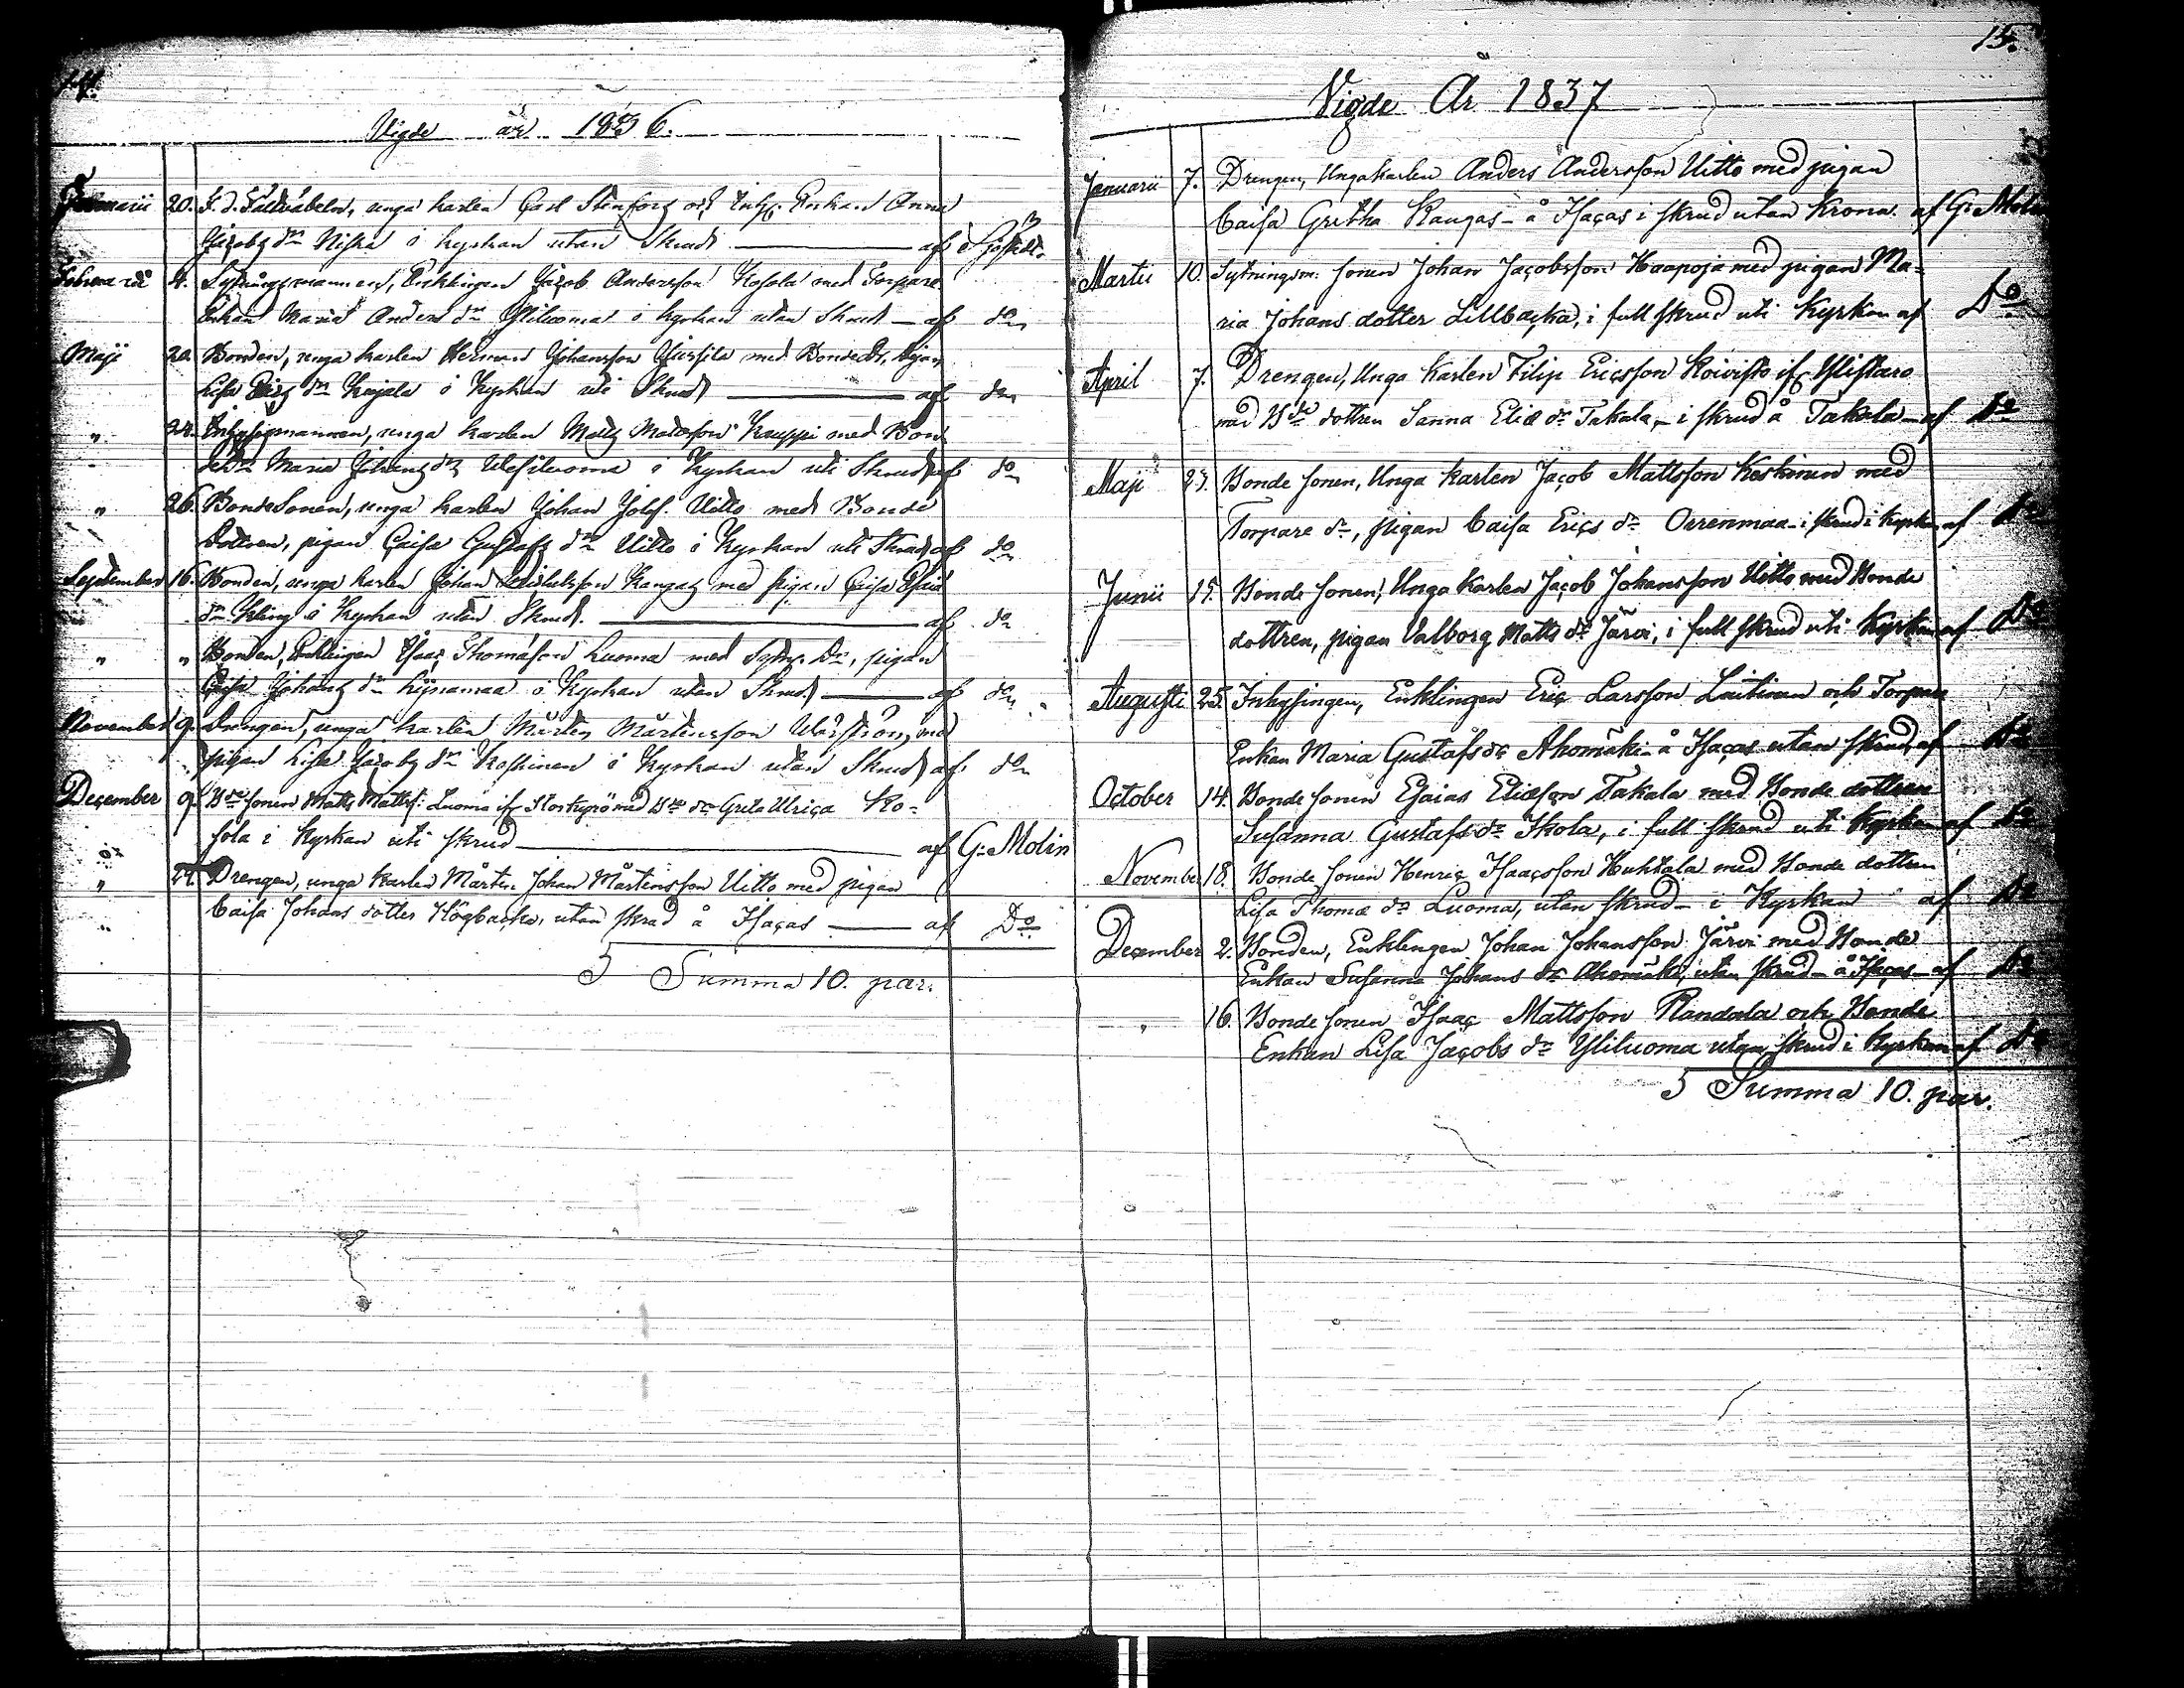 14.
Vigde år 1836.
20. F. d. Fältväbeln, unga karlen Carl Stenfors och Inhys. Enkan Anna
Jacobs dr Niska i kyrkan utan Skrud af
Februarii 4. Sytningsmannen, Enklingen Jacob Andersson Kosola med Torpare
Enkan Maria Anders dr Yliluoma i kyrkan utan Skrud af do
Maji 20. Bonden, unga karlen Herman Johansson med Bonde Dr, pigan
Lisa dr Kajala i Kyrkan uti Skrud af do
" unga karlen Matts Matsson Kauppi med Bon
de dr Maria Johans dr i Kyrkan uti Skrud af do
" 26. BondeSonen, unga karlen Johan Josef. Uitto med Bonde
Dottren, pigan Caisa Gustafs dr Uitto i Kyrkan uti Skrud af do
September 16. Bonden, unga karlen Johan Kangas med pigan Caisa
dr Kling i Kyrkan utan Skrud. af do
" " Bonden, Enklingen Isaac Thomasson Luoma med Sytn. Dr, pigan
Caisa Johans dr i Kyrkan utan Skrud af do
November 9. Drengen, unga karlen Mårten Mårtensson med
pigan Lisa Jacobs dr Koskinen i Kyrkan utan Skrud af do
December 9. Bde sonen Matts Matts: Luoma ifr Storkyrö med Bde dr Greta Ulrica Ko-
sola i Kyrkan uti skrud af G: Molin
" 27. Drengen, unga karlen Mårten Johan Mårtensson Uitto med pigan
Caisa Johans dotter Högbacka, utan skrud å Isacas af Do
Summa 10. par.
15.
Vigde År 1837
Januarii 7. Drengen, Unga karlen Anders Andersson Uitto med pigan
Caisa Gretha Kangas - å Isacas i skrud utan Krona. af G: Molin
Martii 10. Sytningsm: sonen Johan Jacobsson Haapoja med pigan Ma-
ria Johans dotter Lillbacka, i full skrud uti Kyrkan af Do
April 7. Drengen, Unga Karlen Filip Ericsson Koivisto ifr Ylistaro
med Bde dottren Sanna Eliæ dr Takala, - i skrud å Takala - af Do
Maji 23. Bonde sonen, Unga karlen Jacob Mattsson Keskinen med
Torpare dr, pigan Caisa Erics dr Orrenmaa - i skrud i kyrkan af Do
Junii 15. Bonde sonen, Unga Karlen Jacob Johansson Uitto med Bonde
dottren, pigan Valborg Matts dr Järvi, i full skrud uti Kyrkan af Do
Augusti 25. Inhysingen, Enklingen Eric Larsson Laitinen och Torpare
Enkan Maria Gustafs dr Ahomäki - å Isacas utan skrud, af Do
October 14. Bonde sonen Esaias Eliæson Takala med Bonde dottren
Susanna Gustafs dr Skola, i full skrud uti Kyrkan af Do
November 18. Bonde sonen Henric Isaacsson Huhtala med Bonde dottren
Lisa Thomæ dr Luoma, utan skrud - i Kyrkan af Do
December 2. Bonden, Enklingen Johan Johansson Järvi med Bonde
Enkan Susanna Johans dr Ahomäki, utan skrud - å Isacas - af Do
" 16. Bonde sonen Isaac Mattsson Randala och Bonde
Enkan Lisa Jacobs dr Yliluoma utan skrud i Kyrkan af Do
Summa 10. par.